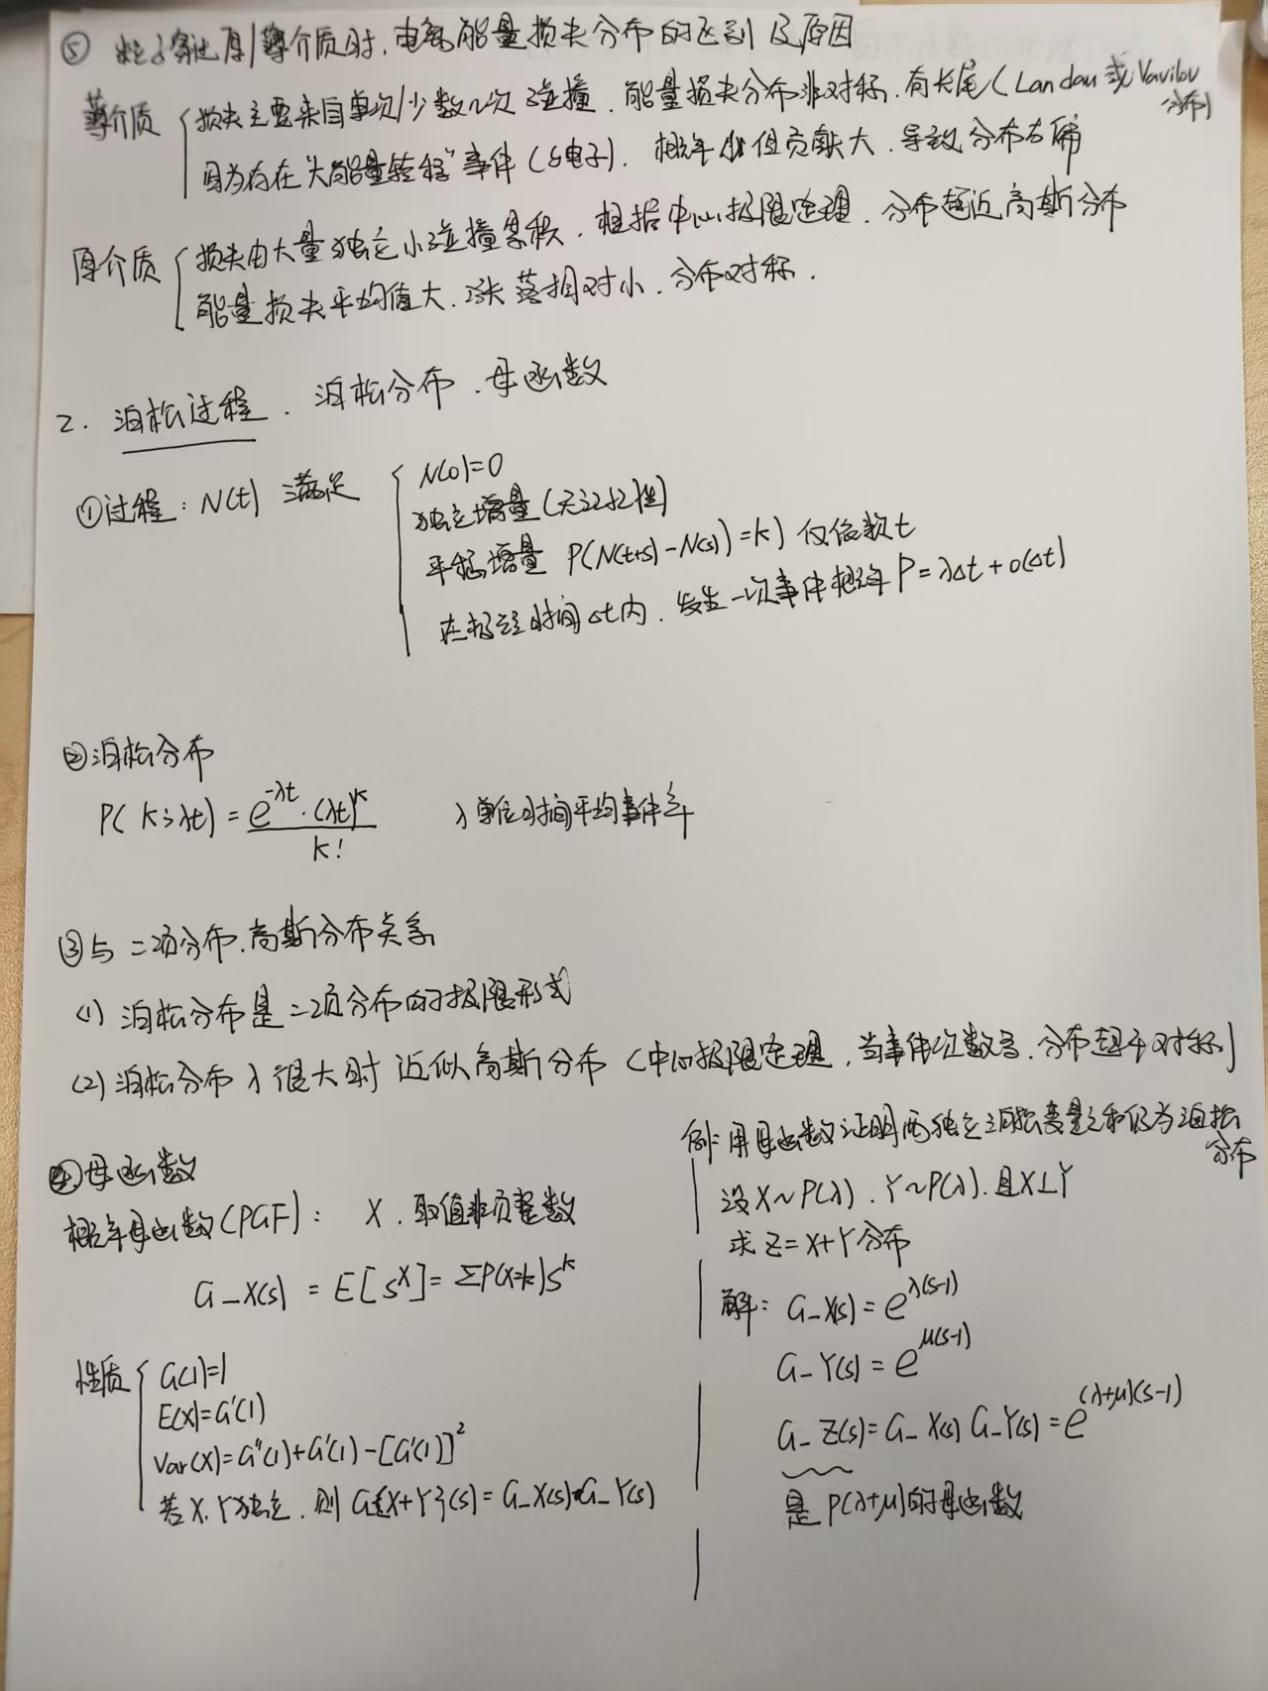 ⑤ 粒子穿过厚/薄介质时,电离能量损失分布的区别及原因
薄介质 { 损失主要来自单次/少数几次碰撞,能量损失分布非对称,有长尾(Landau或Vavilov分布)
因为存在"大能量转移"事件(δ电子),概率小但贡献大,导致分布右偏
厚介质 { 损失由大量独立小碰撞累积,根据中心极限定理,分布趋近高斯分布
能量损失平均值大,涨落相对小,分布对称.
2. 泊松过程、泊松分布、母函数
①过程:N(t) 满足 { N(0)=0
独立增量(无记忆性)
平稳增量 P(N(t+s)-N(s))=k) 仅依赖t
在极短时间Δt内,发生一次事件概率P=λΔt+o(Δt)
②泊松分布
P(k;λt)=e^{-λt}·(λt)^k / k! λ单位时间平均事件率
③与二项分布、高斯分布关系
(1) 泊松分布是二项分布的极限形式
(2) 泊松分布λ很大时近似高斯分布(中心极限定理,当事件次数多,分布趋于对称)
④母函数
概率母函数(PGF): X,取值非负整数
G_X(s) = E[s^X] = ΣP(X=k)s^k
性质 { G(1)=1
E(X)=G'(1)
Var(X)=G''(1)+G'(1)-[G'(1)]²
若X,Y独立,则 G{X+Y}(s)=G_X(s)·G_Y(s)
例:用母函数证明两独立泊松变量之和仍为泊松分布
设X~P(λ),Y~P(λ),且X⊥Y
求Z=X+Y分布
解:G_X(s)=e^{λ(s-1)}
G_Y(s)=e^{μ(s-1)}
G_Z(s)=G_X(s) G_Y(s)=e^{(λ+μ)(s-1)}
是P(λ+μ)的母函数